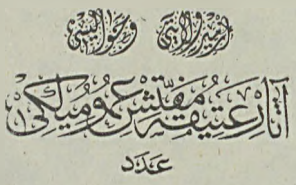 ازمیر ولایتی وحوالیسی
آثار عتیقه مفتش عمومیلكی
عدد